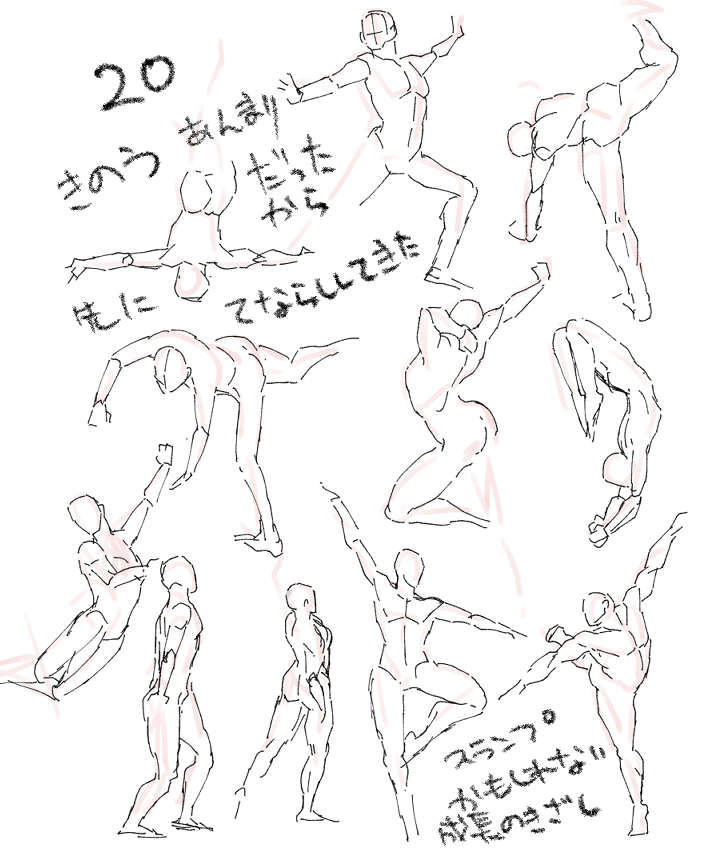 20
きのう あんまり
だった
から
先に てならししてきた
スランプ
かもしれない
成長のきざし